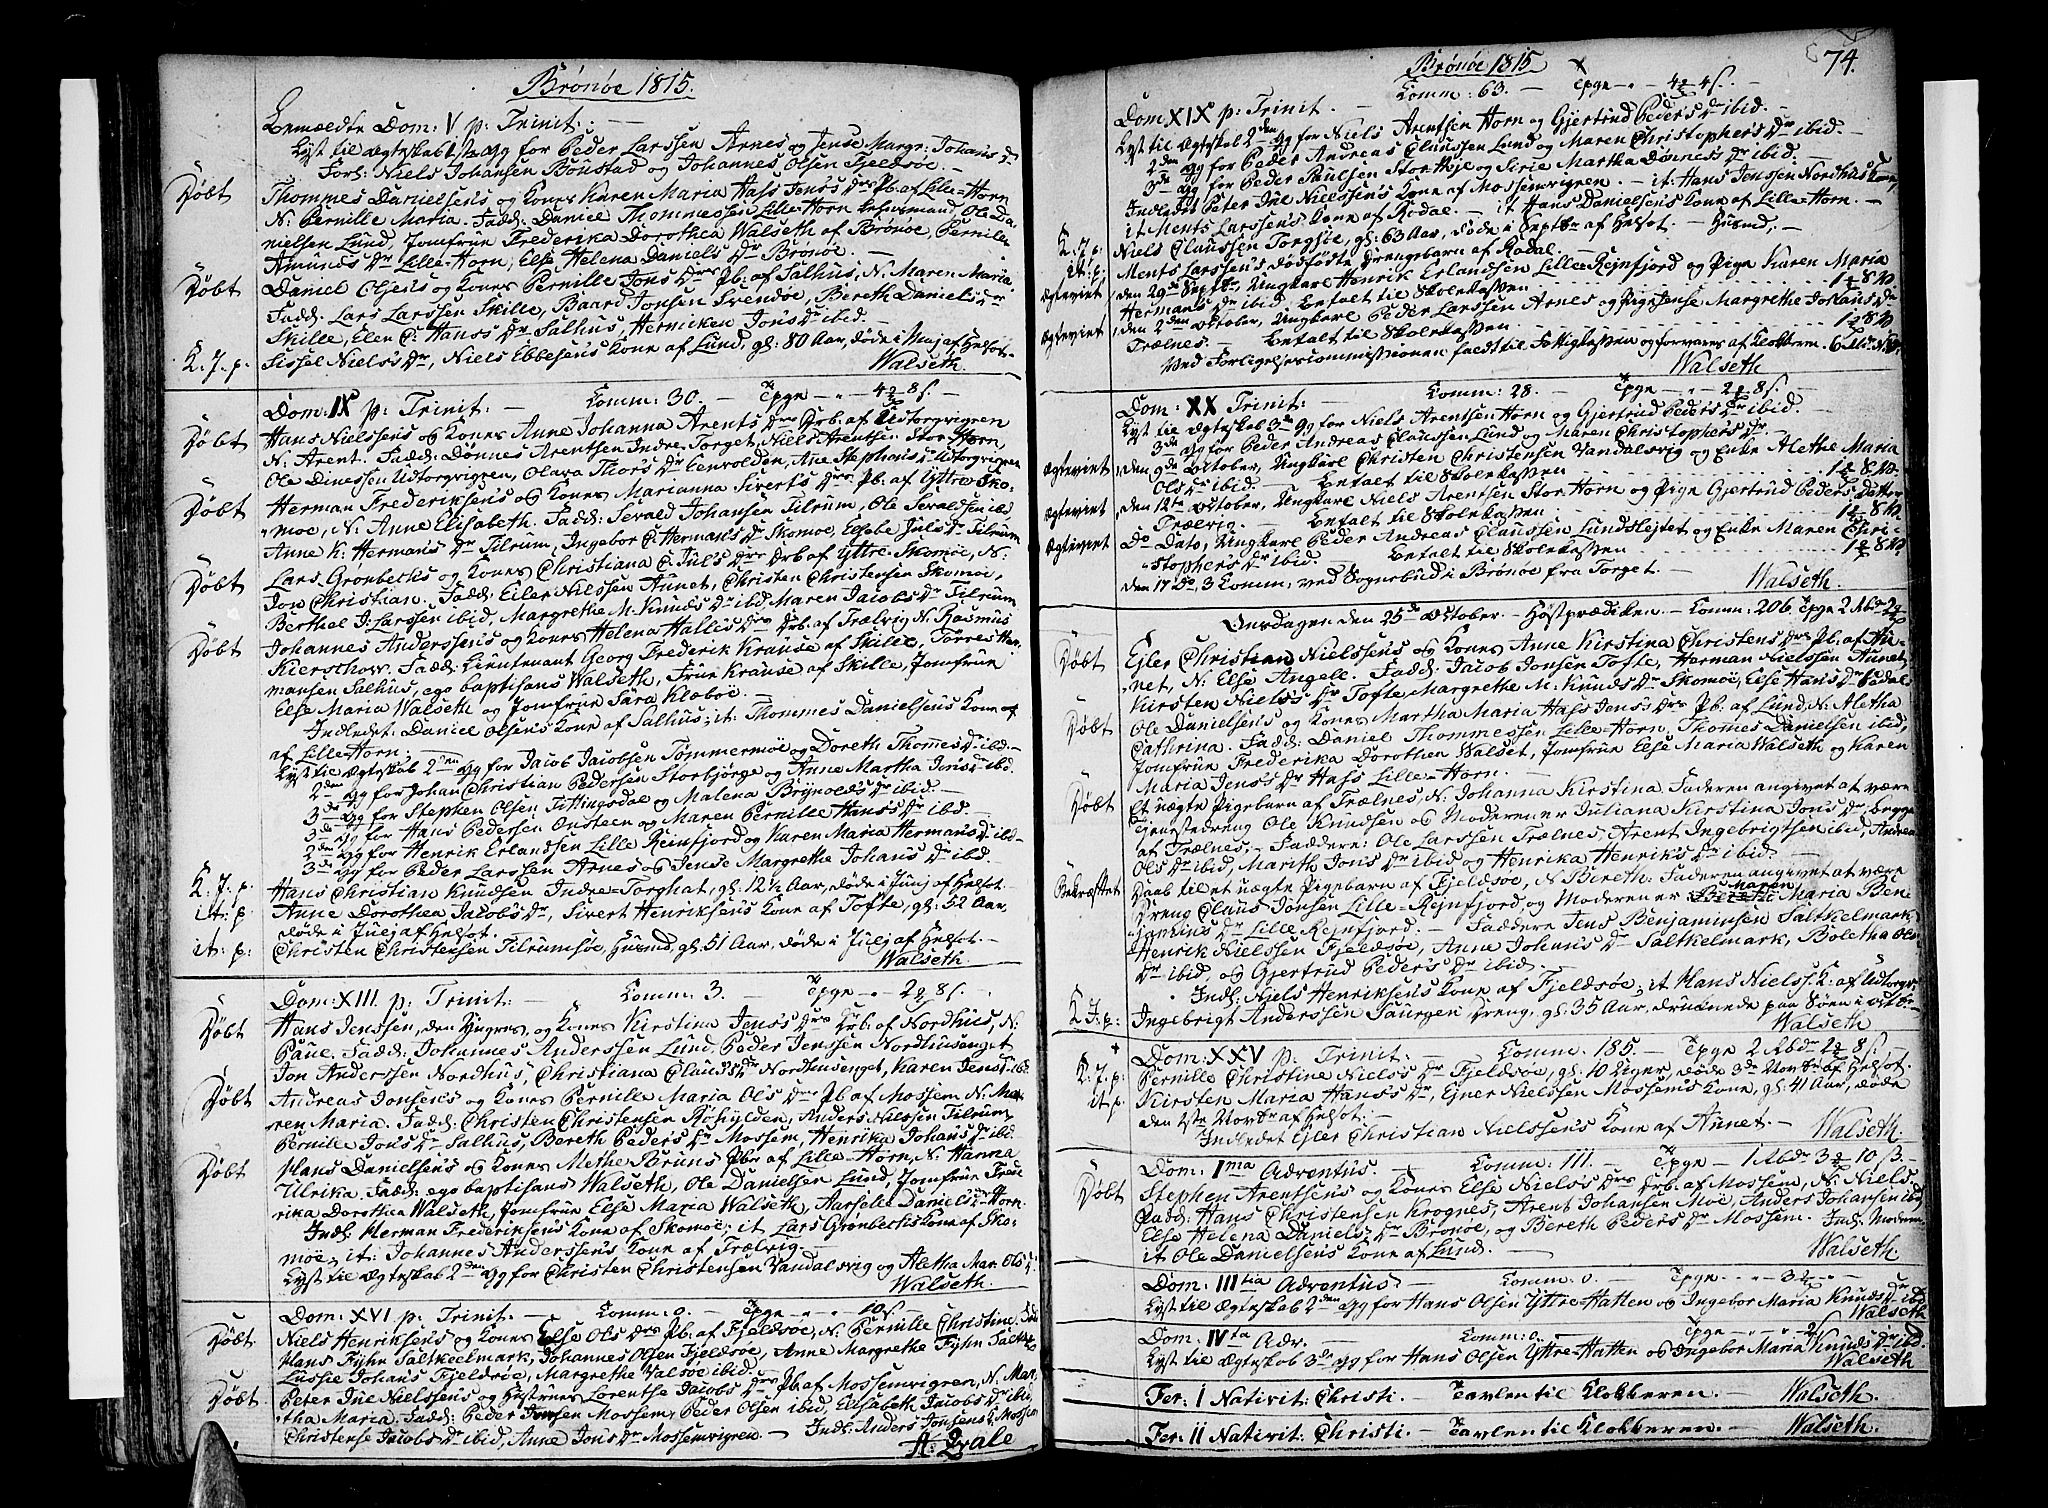 Brønøe 1815.
Bemældte Dom: V p: Trinit: —
Lyst til Ægteskab 1ste Gg for Peder Larssen Arnes og Jense Margr: Johans Dr
Forl: Niels Johansen Bønstad og Johannes Olsen Fjeldsøe. —
Døbt Thommes Danielsens og Kones Karen Maria Hass Jens's Drs Pb. af Lille-Horn
N. Pernille Maria. Fadd: Daniel Thommessen Lille-Horn Lehnsmand, Ole Da-
nielsen Lund, Jomfrue Frederika Dorothea Walseth af Brønøe, Pernille
Amunds Dr Lille-Horn, Else Helena Daniels Dr Brønøe. —
Døbt Daniel Olsens og Kones Pernille Jons Drs Pb. af Salhus, N. Maren Maria.
Fadd: Lars Larssen Skille, Baard Jonsen Svendøe, Bereth Daniels Dr
Skille, Elen C: Hans's Dr Salhus, Hermiken Jons Dr ibid.
K. J. p. Sissel Niels's Dr, Niels Ebbesens Kone af Lund, gl: 80 Aar, døde i Maj af Helsot.
Walseth
Dom: IX p: Trinit: — Comm: 30. — Tpge — „ — 4 8 s. —
Døbt Hans Nielssens og Kones Anne Johanna Arents Drs Drb. af Udtorgvigen
N. Arent. Fadd: Dønnes Arentsen Indre Torget, Niels Arentsen Stor Horn
Ole Dinessen Udtorgvigen, Olava Thors Dr Evenvolden, Ane Stephans Udtorgvigen
Døbt Herman Frederiksens og Kones Marianna Siverts Drs Pb. af Yttre Sko-
moe, N. Anne Elisabeth. Fadd: Sevald Johansen Tilrum, Ole Sevaldsen ibd
Anne K: Hermans Dr Tilrum, Ingebor C: Hermans Dr Skomoe, Elsebe Juls Dr Tilrum
Døbt Lars Grønbechs og Kones Christiana C Juls Drs Drb. af Yttre-Skomøe, N.
Jon Christian. Fadd: Eiler Nilssen Aunet, Christen Christensen Skomoe,
Berthel J: Larssen ibid, Margrethe M. Knuds Dr ibid, Maren Jacobs Dr Tilrum
Døbt Johannes Anderssens og Kones Helena Hallis Drs Drb. af Trælvig N. Rasmus
Kierschow. Fadd: Lieutenant Georg Frederik Krause af Skille, Torres Her-
mansen Salhus, ego baptisans Walseth, Frue Krause af Skille, Jomfrue
Else Maria Walseth og Jomfrue Sara Klæboe. —
Indledet: Daniel Olsens Kone af Salhus; it: Thommes Danielsens Kone af
af Lille-Horn:
Lyst til Ægteskab 2den Gg for Jacob Jacobsen Tømmermoe og Doreth Thomes Dr ibd. —
2den Gg for Johan Christian Pedersen Storbjørge og Anne Martha Jons Dr ibd.
3de Gg for Stephen Olsen Tillingsdal og Malena Brynolds Dr ibid. —
3de Gg for Hans Pedersen Onsteen og Maren Pernille Hans's Dr ibd.
2den Gg for Henrik Erlandsen Lille Reinfjord og Karen Maria Hermans Dr ibd.
3de Gg for Peder Larssen Arnes og Jense Margrethe Johans Dr ibd. —
K. J. p. Hans Christian Knudsen Indre-Torghat, gl: 12½ Aar, døde i Junj af Helsot. —
it: p. Anne Dorothea Jacobs Dr, Sivert Henriksens Kone af Tofte, gl: 52 Aar,
døde i Julj af Helsot. —
it: p: Christen Christensen Tilrumsøe, Husmd, gl: 51 Aar, døde i Julj af Helsot. —
Walseth
Dom: XIII. p: Trinit: — Comm: 3. — Tpge — „ — 2 8 s. —
Døbt Hans Jenssen, den Yngres, og Kones Kirstina Jens's Drs Drb. af Nordhus, N:
Paue. Fadd: Johannes Anderssen Lund, Peder Jenssen Nordhusenget
Jon Anderssen Nordhus, Christiana Clauss Dr Nordhusenget, Karen Jens Dr ibd
Døbt Andreas Jonsens og Kones Pernille Maria Ols Drs Pb af Mossem N. Ma-
ren Maria. Fadd: Christen Christensen Røshylden, Anders Nilssen Tilrum
Pernille Jons Dr Salhus, Bereth Peders Dr Mossem, Henrika Johans Dr ibd.
Døbt Hans Danielsens og Kones Methe Bruns Pbr af Lille-Horn, N. Hanna
Ulrika. Fadd: ego baptisans Walseth, Ole Danielsen Lund, Jomfrue Frede-
rika Dorothea Walseth, Jomfrue Else Maria Walseth, Aarselle Daniels Dr Horn.
Indl: Herman Frederiksens Kone af Skomoe; it Lars Grønbechs Kone af Sko-
moe, it: Johannes Anderssens Kone af Trælvig. —
Lyst til Ægteskab 2den Gg for Christen Christensen Vandalsvig og Aletha Mar. Ols Dr
Walseth
Dom: XVI p: Trinit: — Comm: 0. — Tpge „ „ 10 s. —
Døbt Niels Henriksens og Kones Else Ols Drs Pb: af Fjeldsøe, N. Pernille Christine. Fadd
Hans Fyhn Saltkeelmark, Johannes Olsen Fjeldsøe, Anne Margrethe Fyhn Saltke
Lussie Johans Fjeldsøe, Margrethe Valsøe ibid
Døbt Peter Ine Nielssens og Hustrues Lorentse Jacobs Drs Pb. af Mossemvigren, N. Mar-
tha Maria. Fadd: Peder Jonsen Mossem, Peder Olsen ibid, Elisabeth Jacobs Dr ibid
Christense Jacobs Dr ibid, Anne Jons Dr Mossemvigren. — Indl: Anders Jonsens K. Mossem
A: Qvale
Brønøe 1815
74.
Dom XIX p: Trinit. — Comm: 63. — Tpge „ 4 4 s.
Lyst til Ægteskab 2den Gg for Niels Arentsen Horn og Gjertrud Peders Dr ibid. —
2den Gg for Peder Andreas Claussen Lund og Maren Christophers Dr ibid. —
3de Gg for Peder Paulsen Stortkje og Sirie Martha Dønnes's Dr ibid: —
Indledet Peter Ine Nielssens Kone af Mossemvigren. — it: Hans Jenssen Nordhus Kone
it Ments Larssens Kone af Rødal. — it Hans Danielsens Kone af Lille-Horn. —
K. J. p. Niels Claussen Torgøe, gl: 63 Aar, døde i Septbr af Helsot. — Husmd,
it: p. Ments Larssen's dødfødte Drengebarn af Rodal.
Ægteviet den 29de Septbr, Ungkarl Henrik Erlandsen Lille-Rejnfjord og Pige Karen Maria
Hermans Dr ibid. Betalt til Skolekassen 1 8
Ægteviet den 2den October, Ungkarl Peder Larssen Arnes og Pige Jense Margrethe Johans Dr
Trælnes. — Betalt til Skolekassen 1 8
Ved Forligelsescommissionen faldt til Fattigkassen og forvares af Klokkeren 6
Walseth
Dom: XX Trinit: — Comm: 28. — Tpge — „ — 2 8 s. —
Lyst til Ægteskab 3de Gg for Niels Arentsen Horn og Gjertrud Peders Dr ibid. —
3de Gg for Peder Andreas Claussen Lund og Maren Christophers Dr —
Ægteviet den 9de October, Ungkarl Christen Christensen Vandalsvig og Enke Alethe Maria
Ols Dr ibid. — Betalt til Skolekassen 1 8
Ægteviet den 12te October, Ungkarl Niels Arentsen Stor Horn og Pige Gjertrud Peders Datter
Trælvig. Betalt til Skolekassen 1 8
Ægteviet Do Dato, Ungkarl Peder Andreas Claussen Lundsletet og Enke Maren Chri-
stophers Dr ibid. Betalt til Skolekassen 1 8
den 17de 3 Comm, ved Sognebud i Brønøe fra Torget. — Walseth.
Onsdagen den 25de October. — Høstprædiken. — Comm: 206. Tpge 2 Rbdr 2
Døbt Ejler Christian Nielssens og Kones Anne Kirstina Christens Drs Pb. af Au-
net, N. Else Angell. Fadd: Jacob Jonsen Tofte, Herman Nielssen Aunet
Kirsten Niels's Dr Tofte, Margrethe M: Knuds Dr Skomoe, Else Hans Dr Sedal
Døbt Ole Danielsens og Kones Martha Maria Hass Jens's Drs Pb. af Lund, N: Aletha
Cathrina. Fadd: Daniel Thommessen Lille-Horn. Thomes Danielsen ibid,
Jomfrue Frederika Dorothea Walset, Jomfrue Else Maria Walseth og Karen
Maria Jens's Dr Hass Lille-Horn. —
Døbt Et uægte Pigebarn af Trælnes, N. Johanna Kirstina, Faderen angivet at være
Tjenestedreng Ole Knudsen og Moderen er Juliana Kirstina Jons Dr, begge
af Trælnes. — Faddere: Ole Larssen Trælnes, Arent Ingebrigtsen ibid, Andrea
Ols Dr ibid, Marith Jons Dr ibid og Henrika Henriks Dr ibid. —
Bekræftet Daab til et uægte Pigebarn af Fjeldsøe, N Bereth: Faderen angivet at være
Dreng Claus Jonsen Lille-Rejnfjord og Moderen er Maren Maria Ben-
jamins Dr Lille Rejnfjord. — Faddere Jens Benjaminsen Saltkelmark
Henrik Nielssen Fjeldsøe, Anne Johans Dr Saltkelmark, Boletha Ols
Dr ibid, og Gjertrud Peders Dr ibid. —
Indl: Niels Henriksens Kone af Fjeldsøe, it Hans Nielss: K: af Udtorgv:
K J. p: Ingebrigt Anderssen Saurgen Dreng, gl: 35 Aar, druknede paa Søen i Octbr
Walseth
Dom: XXV p: Trinit: — Comm: 185. — Tpge 2 Rbdr 2 8 s. —
K. J. p: Pernille Christine Niels's Dr Fjeldsøe, gl: 10 Uger, døde 3de Novbr af Helsot.
it p. Kirsten Maria Hans's Dr, Ejner Nielssen Mossem's Kone, gl: 41 Aar, døde
den Novbr af Helsot. —
Indledet Ejler Christian Nielssens Kone af Aunet. — Walseth
Dom: Ima Adventus. — Comm: 111. — Tpge — 1 Rbdr 3 10 s. —
Døbt Stephen Arentsens og Kones Else Niels's Drs Drb. af Mossem, N: Niels.
Fadd: Hans Christensen Krognes, Arent Johansen Moe, Anders Johansen ibd
Else Helena Daniels Dr Brønøe, og Bereth Peders Dr Mossem. Indl: Moderen
it Ole Danielsens Kone af Lund. — Walseth
Dom: IIItia Adventus. — Comm: 0. — Tpge — „ 3 —
Lyst til Ægteskab 2den Gg for Hans Olsen Yttre-Hatten og Ingebor Maria Knuds Dr ibd
Walseth
Dom: IVta Adv. Comm: 0. — Tpge — „ 2
Lyst til Ægteskab 3de Gg for Hans Olsen Yttre-Hatten og Ingebor Maria Knuds Dr ibd.
Walseth
Fer: I Nativit: Christi. — Tavlen til Klokkeren. — Walseth.
Fer: II Nativit: Christi — Tavlen til Klokkeren. — Walseth.